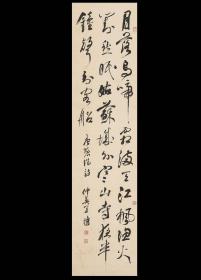 月落烏啼霜滿天江楓漁火
對愁眠姑蘇城外寒山寺夜半
鐘聲到客船
唐張繼詩